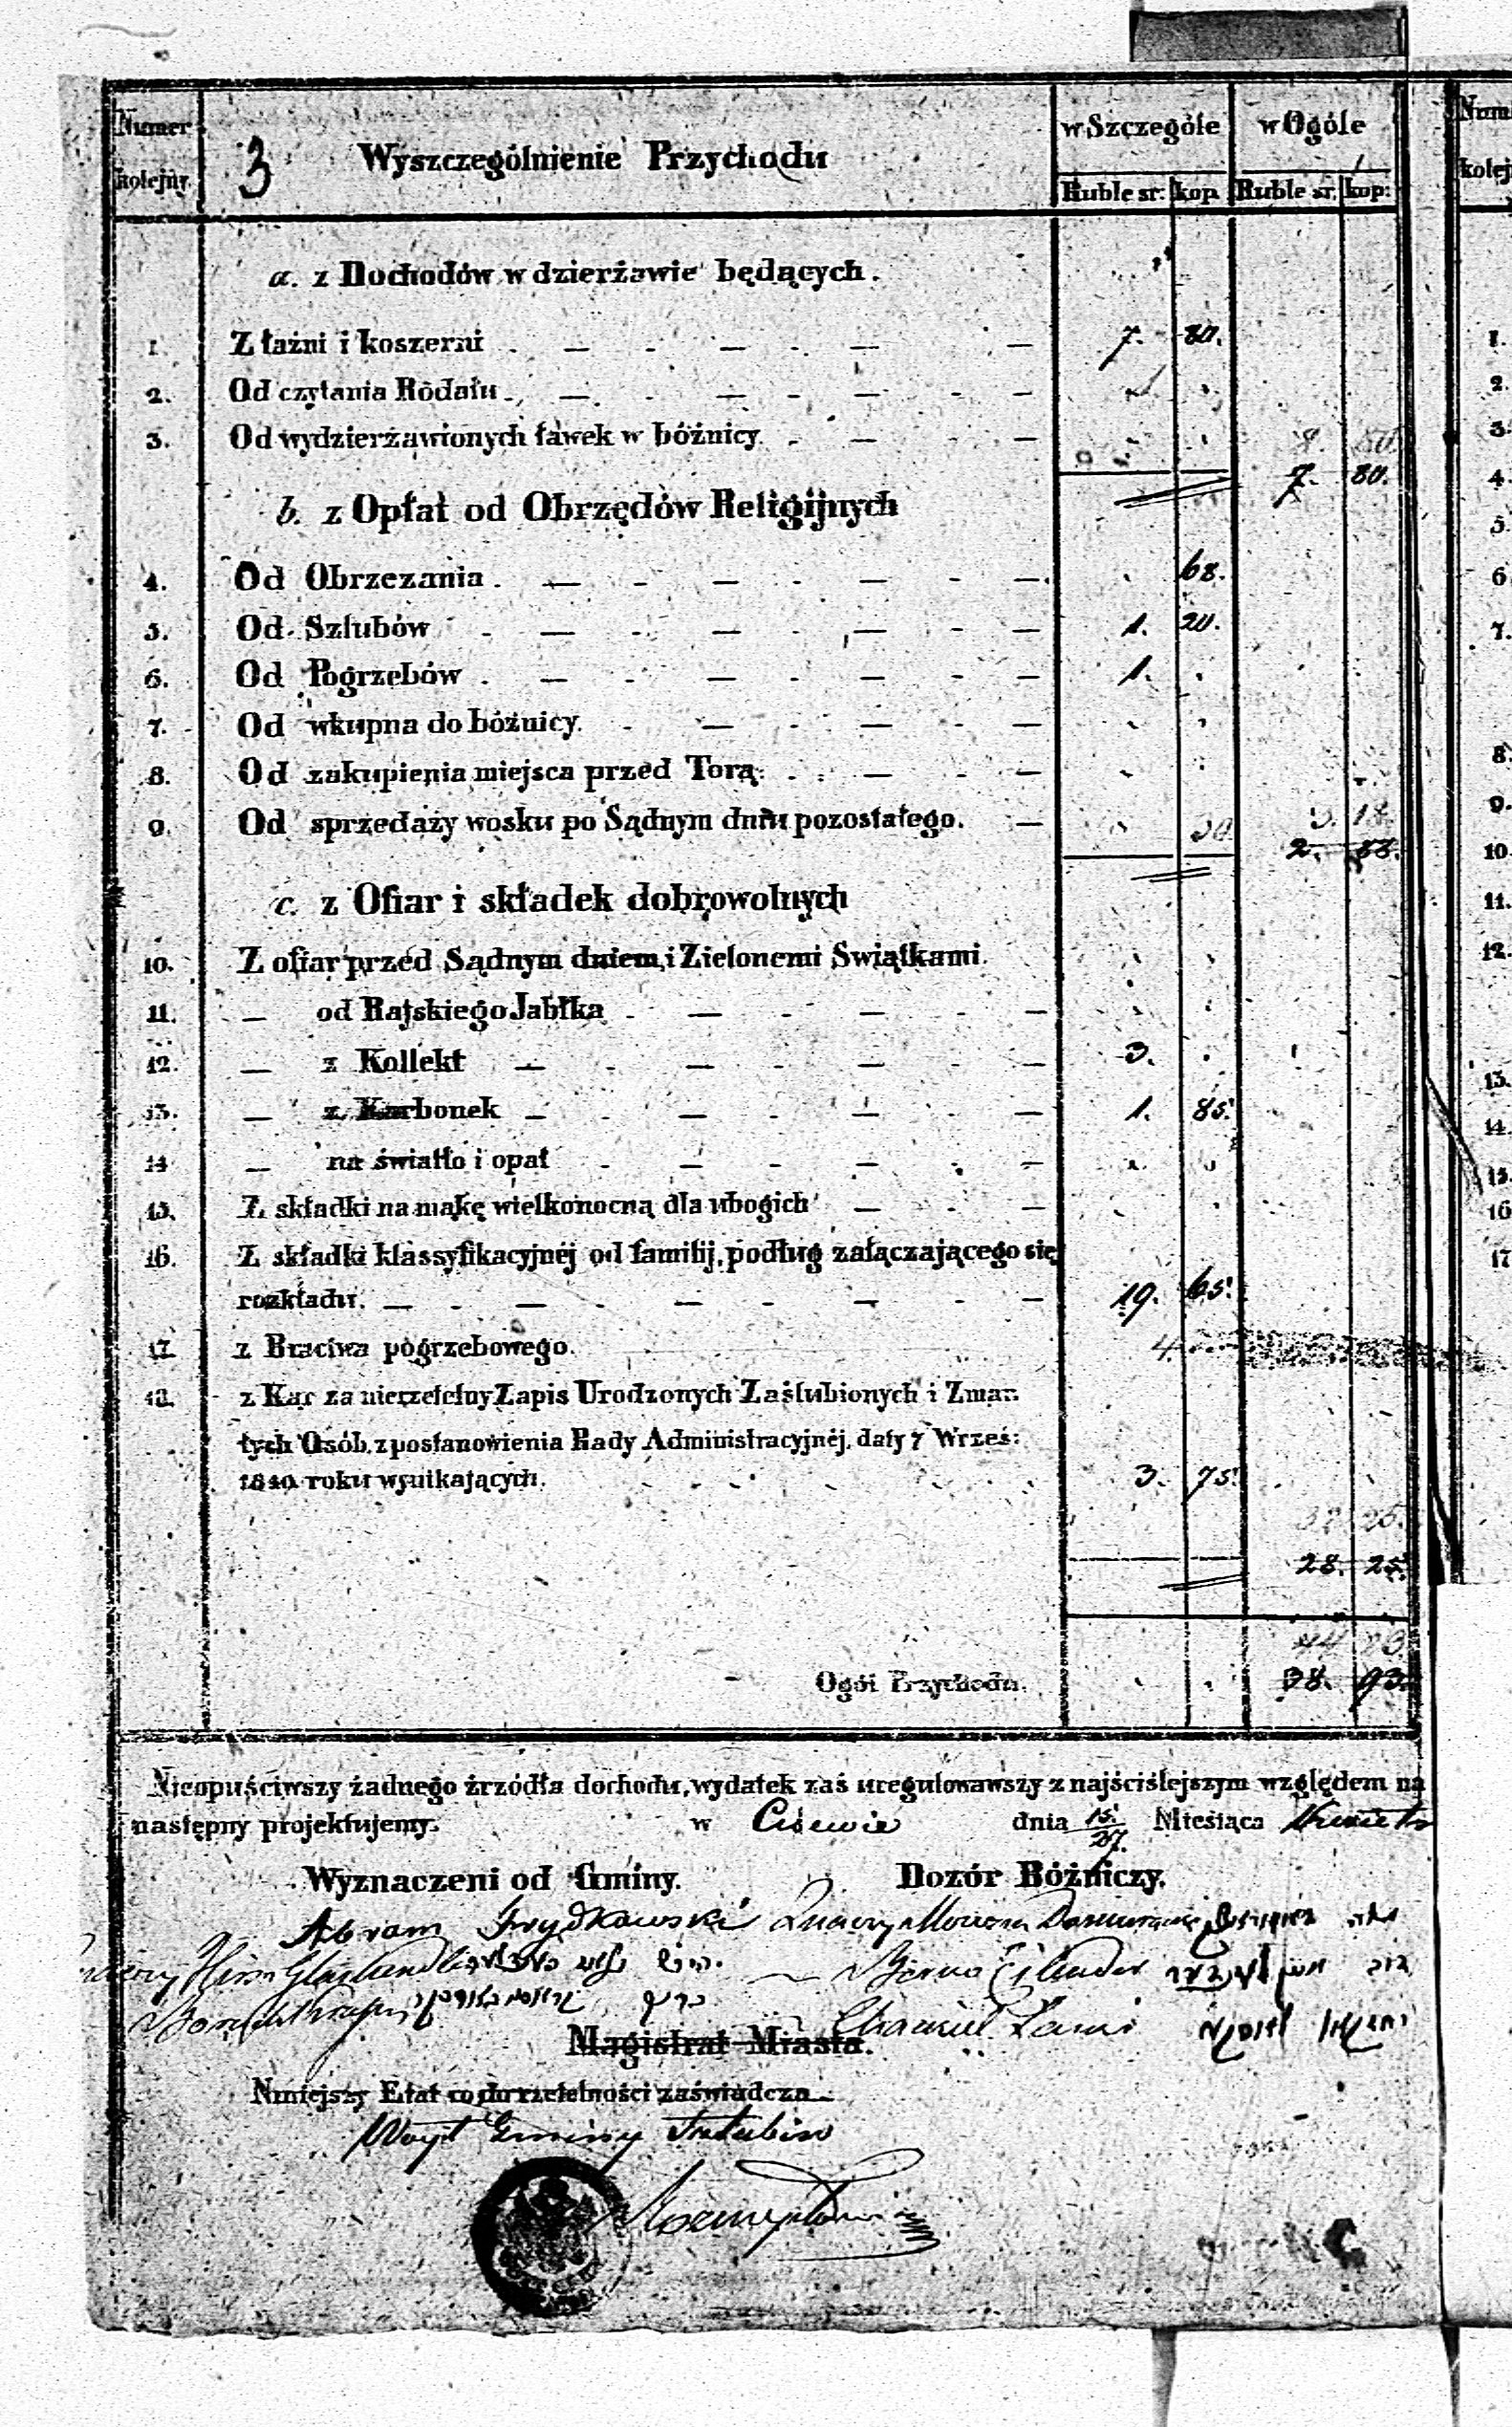 Numer kolejny. 3 Wyszczególnienie Przychodu w Szczególe w Ogóle
Ruble sr. kop. Ruble sr. kop:
a. z Dochodów w dzierżawie będących.
1. Z łaźni i koszerni . — . — . — — 7. 80.
2. Od czytania Rodału . — . — . — . —
3. Od wydzierżawionych ławek w bóźnicy. . — . —
7. 80.
b. z Opłat od Obrzędów Religijnych
4. Od Obrzezania . — . — . — . — . 68.
5. Od Szlubów . — . — . — . — 1. 20.
6. Od Pogrzebów . — . — . — . — 1. .
7. Od wkupna do bóżnicy. . — . — . — . .
8. Od zakupienia miejsca przed Torą. . . — . — . .
9. Od sprzedaży wosku po Sądnym dniu pozostałego. — . 30 3. 18.
2. 88.
c. z Ofiar i składek dobrowolnych
10. Z ofiar przed Sądnym dniem, i Zielonemi Swiątkami. . .
11. — od Rajskiego Jabłka . — . — . — . .
12. — z Kollekt — . — . — . — 3. .
13. — z Karbonek — . — . — . — 1. 85.
14 — na światło i opał . — . — . — . .
15. Z składki na mąkę wielkonocną dla ubogich — . — . .
16. Z składki klassyfikacyjnéj od familij, podług załączającego się
rozkładu. — . — . — . — . — 19. 65.
17. z Bractwa pogrzebowego. 4.
18. z Kar za nierzetelny Zapis Urodzonych Zaślubionych i Zmar-
łych Osób, z postanowienia Rady Administracyjnéj, daty 7 Wrześ:
1840 roku wynikających. 3. 75.
32 25.
28. 25.
44 23.
Ogół Przychodu. . . 38. 93.
Nieopuściwszy żadnego źrzódła dochodu, wydatek zaś uregulowawszy z najściślejszym względem na
następny projektujemy. w dnia 15/27. Miesiąca
Wyznaczeni od Gminy. Dozór Bóźniczy.
Abram
Hirsz
Magistrat Miasta.
Niniejszy Etat co do rzetelności zaświadcza
Woyt Gminy